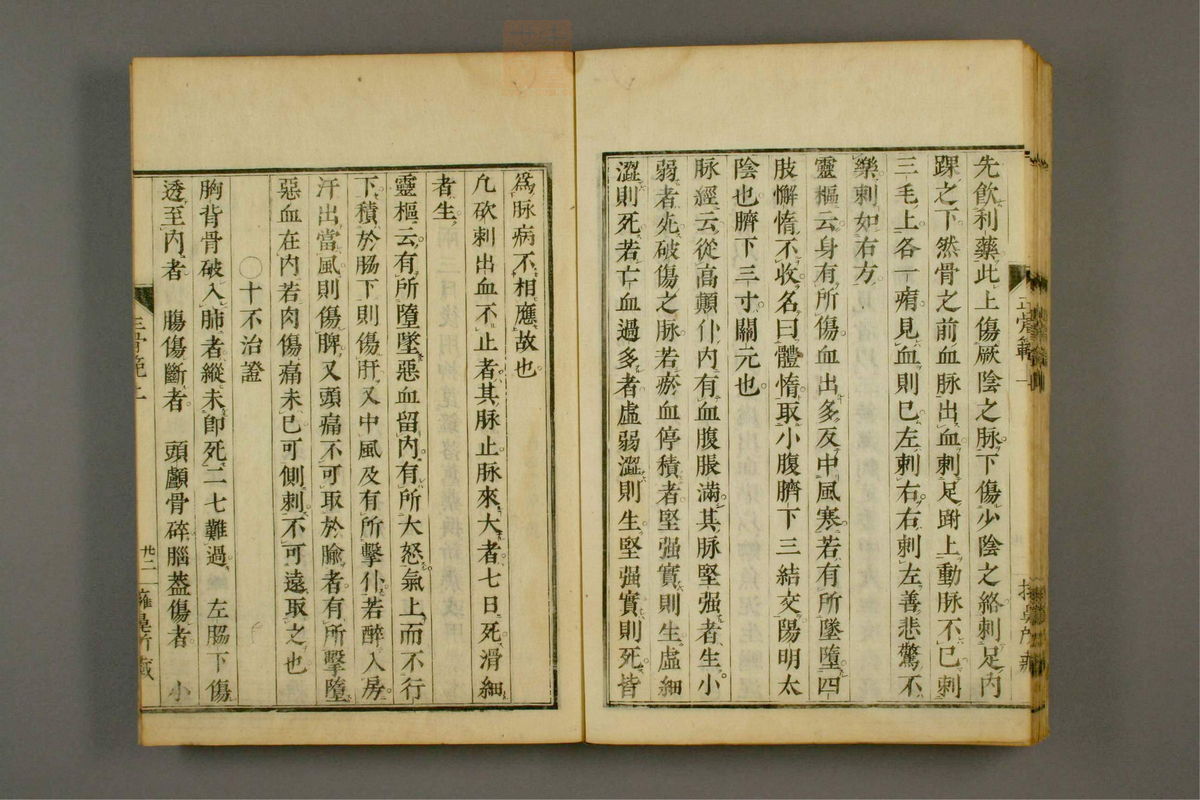 先飲利藥此上傷厥陰之脉下傷少陰之絡刺足内
踝之下然骨之前血脉出血刺足跗上動脉不已刺
三毛上各一痏見血則已左刺右右刺左善悲驚不
樂刺如右方
靈樞云身有所傷血出多及中風寒若有所墜墮四
肢懈惰不收名曰體惰取小腹臍下三結交陽明太
陰也臍下三寸關元也
脉經云從高顛仆内有血腹脹滿其脉堅强者生小
弱者死破傷之脉若瘀血停積者堅强實則生虛細
澀則死若亡血過多者虛弱澀則生堅强實則死皆
爲脉病不相應故也
凢砍刺出血不止者其脉止脉來大者七日死滑細
者生
靈樞云有所墮墜惡血留内有所大怒氣上而不行
下積於肠下則傷肝又中風及有所擊仆若醉入房
汗出當風則傷脾又頭痛不可取於腧者有所擊墮
惡血在内若肉傷痛未已可側刺不可遠取之也
〇十不治證
胸背骨破入肺者縱未卽死二七難過 左脇下傷
透至内者 腸傷斷者 頭顱骨碎腦葢傷者 小
正骨範上